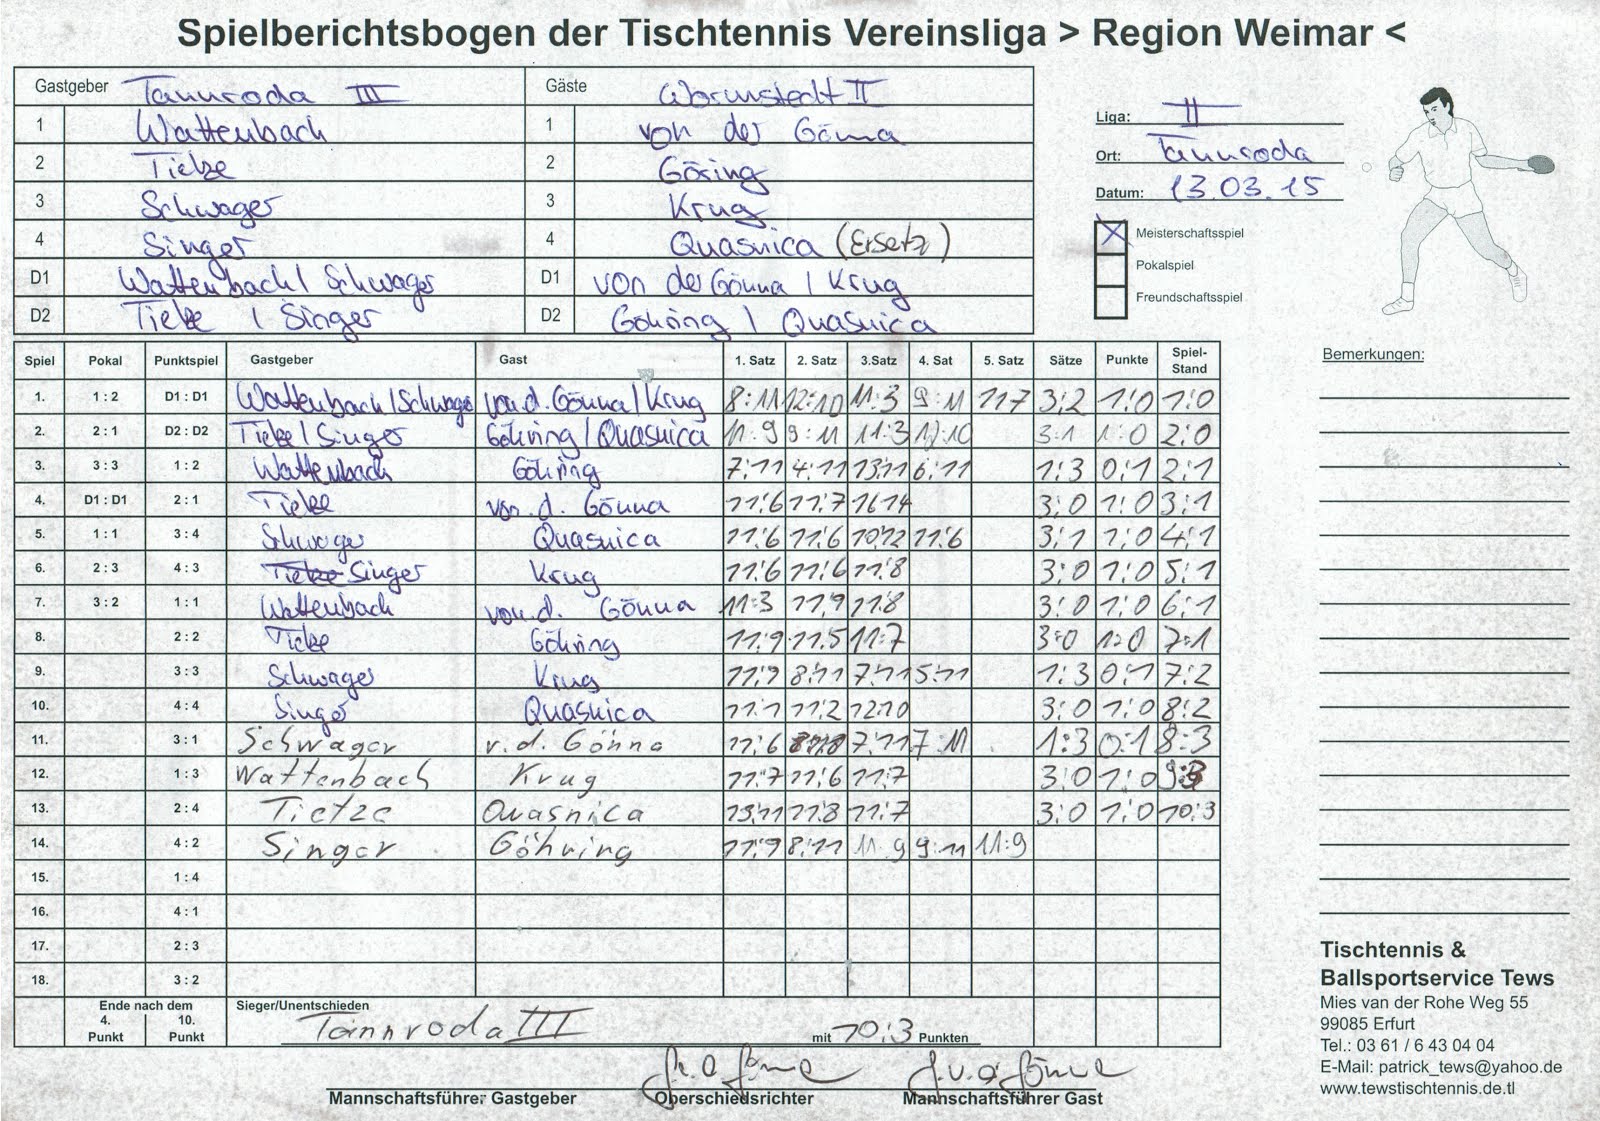 Spielberichtsbogen der Tischtennis Vereinsliga > Region Weimar <
Gastgeber Tannroda III Gäste Wormstedt II
1 Wattenbach 1 von der Gönna
2 Tietze 2 Göring
3 Schwager 3 Krug
4 Singer 4 Quasnica (Ersetz)
D1 Wattenbach/ Schwager D1 von der Gönna / Krug
D2 Tietze / Singer D2 Göhring / Quasnica
Liga: II
Ort: Tannroda
Datum: 13.03.15
X Meisterschaftsspiel
Pokalspiel
Freundschaftsspiel
Bemerkungen:
Spiel Pokal Punktspiel Gastgeber Gast 1. Satz 2. Satz 3.Satz 4. Sat 5. Satz Sätze Punkte Spiel-Stand
1. 1 : 2 D1 : D1 Wattenbach/Schwager von.d.Gönna/Krug 8:11 12:10 11:3 9:11 11:7 3:2 1:0 1:0
2. 2 : 1 D2 : D2 Tietze/Singer Göhring/Quasnica 11:9 9:11 11:3 12:10 3:1 1:0 2:0
3. 3 : 3 1 : 2 Wattenbach Göhring 7:11 4:11 13:11 6:11 1:3 0:1 2:1
4. D1 : D1 2 : 1 Tietze von.d. Gönna 11:6 11:7 16:14 3:0 1:0 3:1
5. 1 : 1 3 : 4 Schwager Quasnica 11:6 11:6 10:12 11:6 3:1 1:0 4:1
6. 2 : 3 4 : 3 Tietze Singer Krug 11:6 11:6 11:8 3:0 1:0 5:1
7. 3 : 2 1 : 1 Wattenbach von.d. Gönna 11:3 11:9 11:8 3:0 1:0 6:1
8. 2 : 2 Tietze Göhring 11:9 11:5 11:7 3:0 1:0 7:1
9. 3 : 3 Schwager Krug 11:9 8:11 7:11 5:11 1:3 0:1 7:2
10. 4 : 4 Singer Quasnica 11:1 11:2 12:10 3:0 1:0 8:2
11. 3 : 1 Schwager v.d. Göhna 11:6 7:11 7:11 1:3 0:1 8:3
12. 1 : 3 Wattenbach Krug 11:7 11:6 11:7 3:0 1:0 9:3
13. 2 : 4 Tietze Quasnica 13:11 11:8 11:7 3:0 1:0 10:3
14. 4 : 2 Singer Göhring 11:9 8:11 11:9 9:11 11:9
15. 1 : 4
16. 4 : 1
17. 2 : 3
18. 3 : 2
Ende nach dem
4. Punkt 10. Punkt
Sieger/Unentschieden
Tannroda III mit 10:3 Punkten
Mannschaftsführer Gastgeber Oberschiedsrichter Mannschaftsführer Gast
Tischtennis &
Ballsportservice Tews
Mies van der Rohe Weg 55
99085 Erfurt
Tel.: 03 61 / 6 43 04 04
E-Mail: patrick_tews@yahoo.de
www.tewstischtennis.de.tl